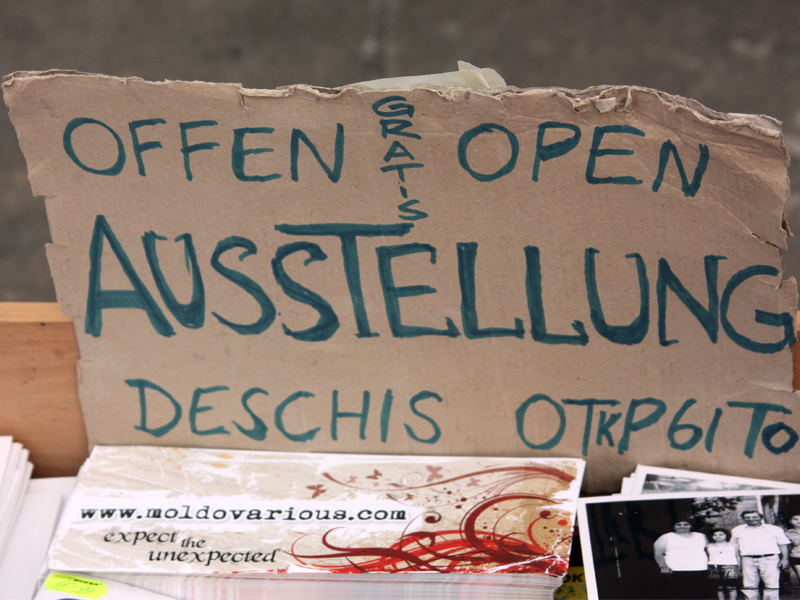 OFFEN GRATIS OPEN
AUSSTELLUNG
DESCHIS ОТКРЫТО
www.moldovarious.com
expect the
unexpected